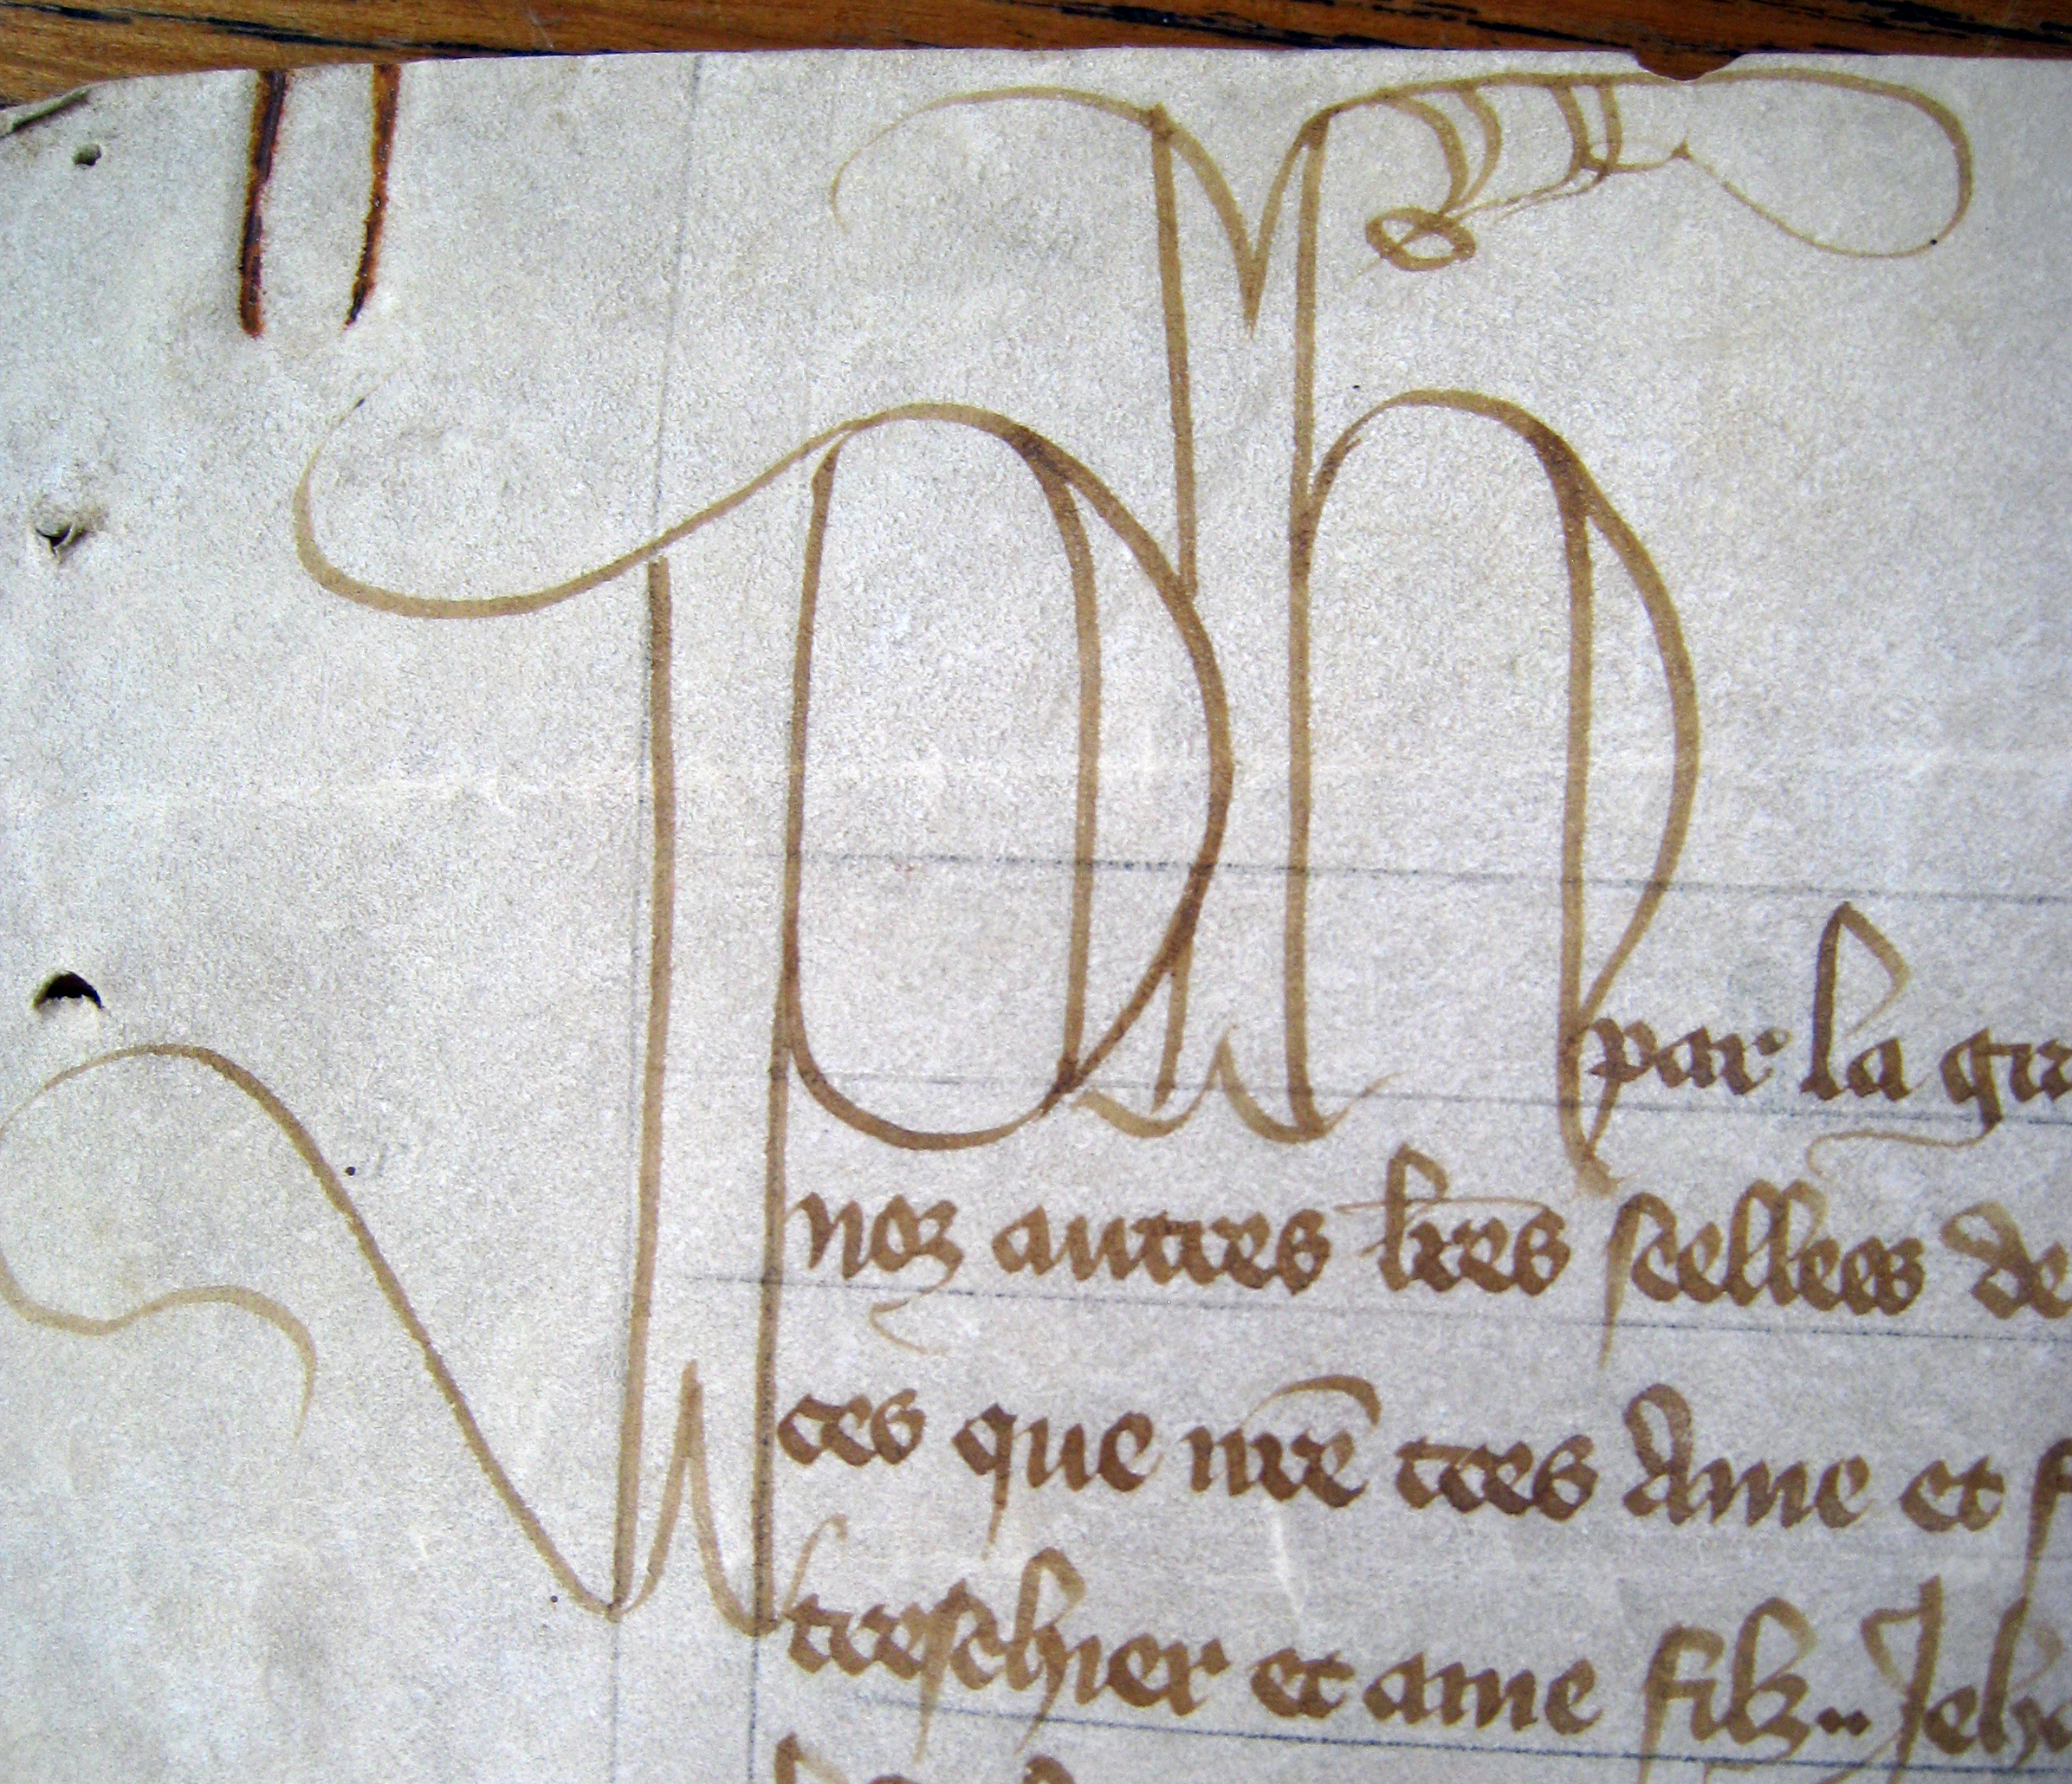 Ph par la gra
noz autres lres seellees de
ces que nre tres Ame et f
treschier et ame filz .. Jeh